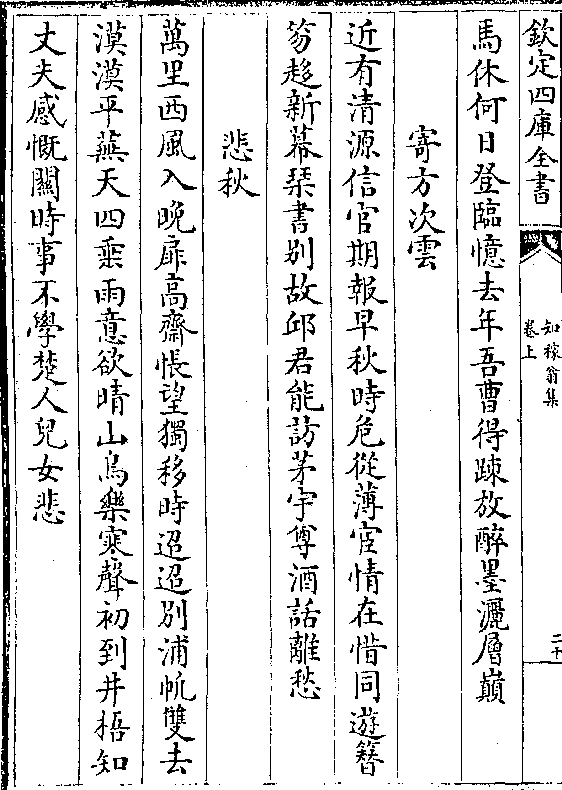 欽定四庫全書
知稼翁集
卷上
二十
馬休何日登臨憶去年吾曹得踈放醉墨灑層巔
寄方次雲
近有清源信官期報早秋時危從薄宦情在惜同遊簪
笏趍新幕琹書别故邱君能訪茅宇尊酒話離愁
悲秋
萬里西風入晚扉高齋悵望獨移時迢迢别浦帆雙去
漠漠平蕪天四垂雨意欲晴山鳥樂寒聲初到井梧知
丈夫感慨關時事不學楚人兒女悲